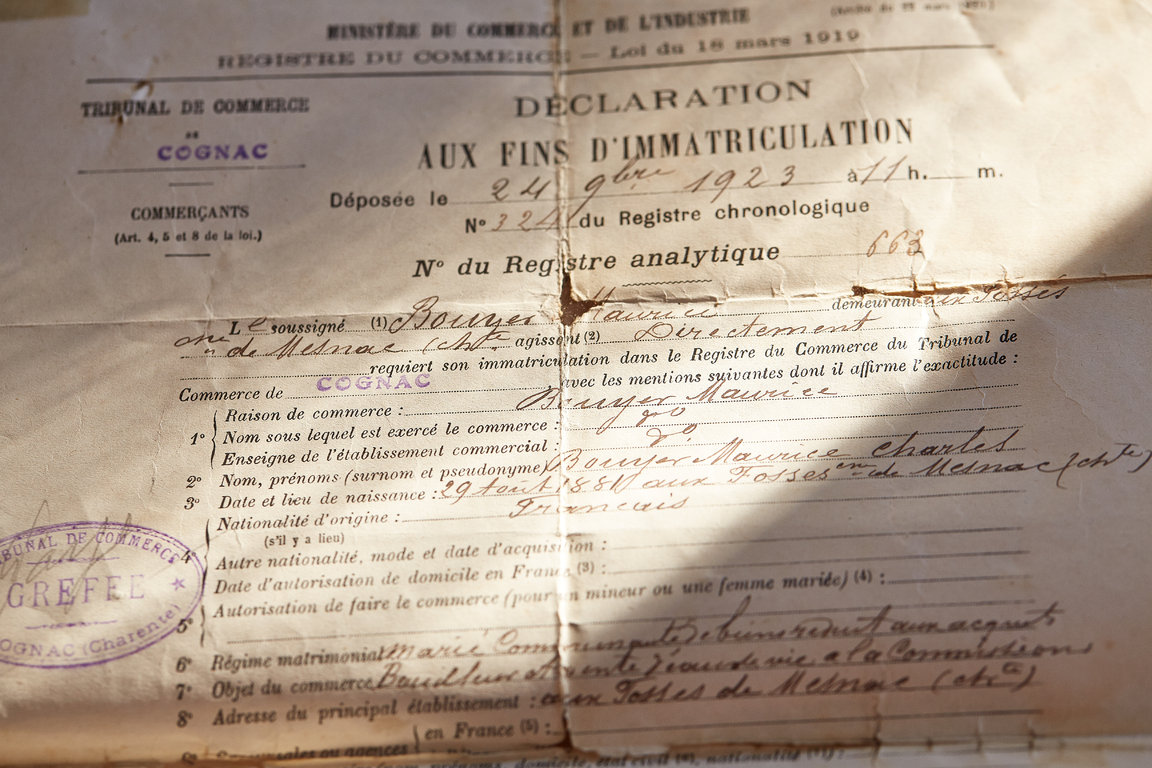 MINISTÈRE DU COMMERCE ET DE L'INDUSTRIE
REGISTRE DU COMMERCE — Loi du 18 mars 1919
TRIBUNAL DE COMMERCE
DE
COGNAC
COMMERÇANTS
(Art. 4, 5 et 8 de la loi.)
DÉCLARATION
AUX FINS D'IMMATRICULATION
Déposée le 24 9bre 1923 à 11 h. m.
N° 324 du Registre chronologique
N° du Registre analytique 663
Le soussigné (1) Bouyer Maurice demeurant aux Fossés
cne de Mesnac (Chte) agissant (2) Directement
requiert son immatriculation dans le Registre du Commerce du Tribunal de
Commerce de COGNAC avec les mentions suivantes dont il affirme l'exactitude :
1° Raison de commerce : Bouyer Maurice
Nom sous lequel est exercé le commerce : do
Enseigne de l'établissement commercial : do
2° Nom, prénoms (surnom et pseudonyme) Bouyer Maurice Charles
3° Date et lieu de naissance : 29 Août 1881 aux Fosses cne de Mesnac (Chte)
4° Nationalité d'origine : Francais
(s'il y a lieu)
Autre nationalité, mode et date d'acquisition :
Date d'autorisation de domicile en France (3) :
5° Autorisation de faire le commerce (pour un mineur ou une femme mariée) (4) :
6° Régime matrimonial marié Communauté de biens reduit aux acquets
7° Objet du commerce Bouilleur et vente d'eaux de vie a la Commission
8° Adresse du principal établissement : aux Fosses de Mesnac (Chte)
en France (5) :
Succursales ou agences
domicile, état civil (6), nationalité (7) :
TRIBUNAL DE COMMERCE
GREFFE
COGNAC (Charente)